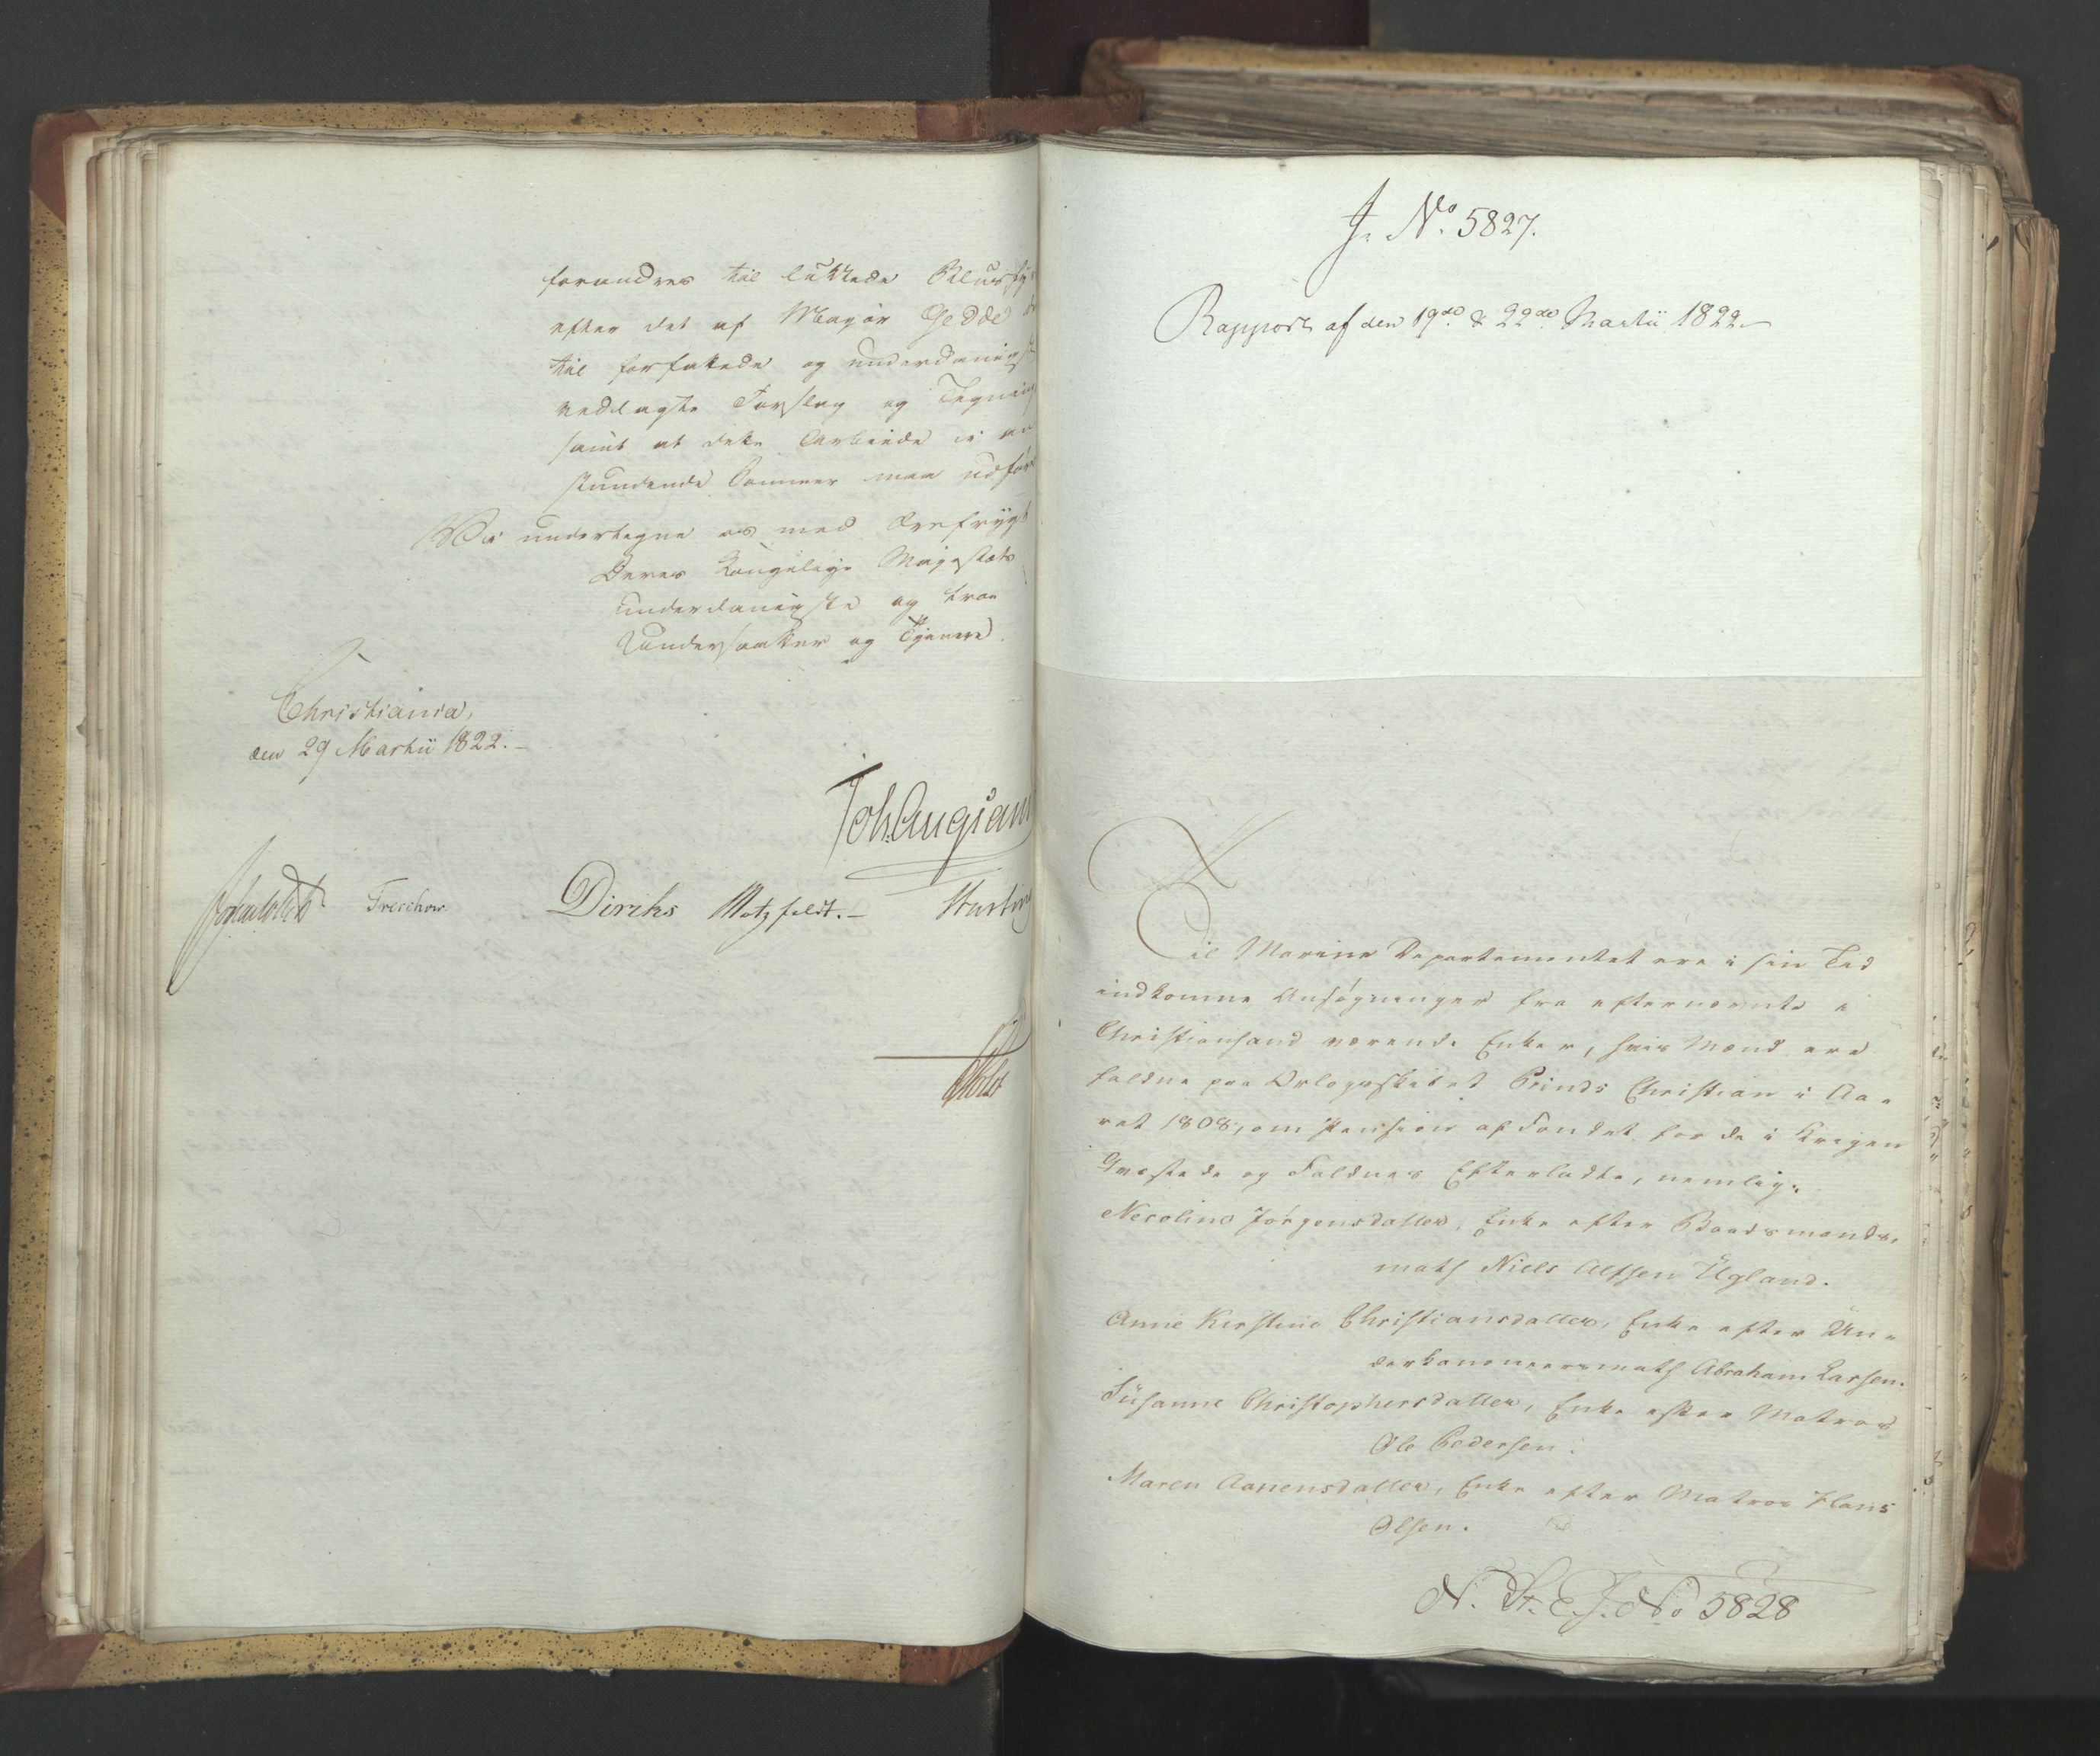 forandres til lukkede Blusfyr
efter det af Major Gedde
til forfattede og underdanigst
vedlagte Forslag og Tegning
samt at dette Arbeide i an
stundende Sommer maa udføre
Vi undertegne os med Ærefrygt
Deres Kongelige Majestæts
underdanigste og troe
Undersaatter og Tjenere.
Christiania,
den 29 Martii 1822.
Treschow Diriks Motzfeldt.
Holst
J. No. 5827.
Rapport af den 19de & 22de Martii 1822
Til Marine Departementet ere i sin Tid
indkomne Ansøgninger fra efternævnte i
Christiansand værende Enker, hvis Mænd ere
faldne paa Orlogsskibet Prinds Christian i Aa-
ret 1808, om Pension af Fondet for de i Krigen
Qvæstede og Faldnes Efterladte, nemlig:
Nicoline Jørgensdatter, Enke efter Baadsmands-
math Niels Alfsen Ugland.
Anne Kirstine Christiansdatter, Enke efter Un-
derkanoneersmath Abraham Larsen.
Susanne Christophersdatter, Enke efter Matros
Ole Pedersen.
Maren Aanensdatter, Enke efter Matros Hans
Olsen.
N. St. E. J. No 5828